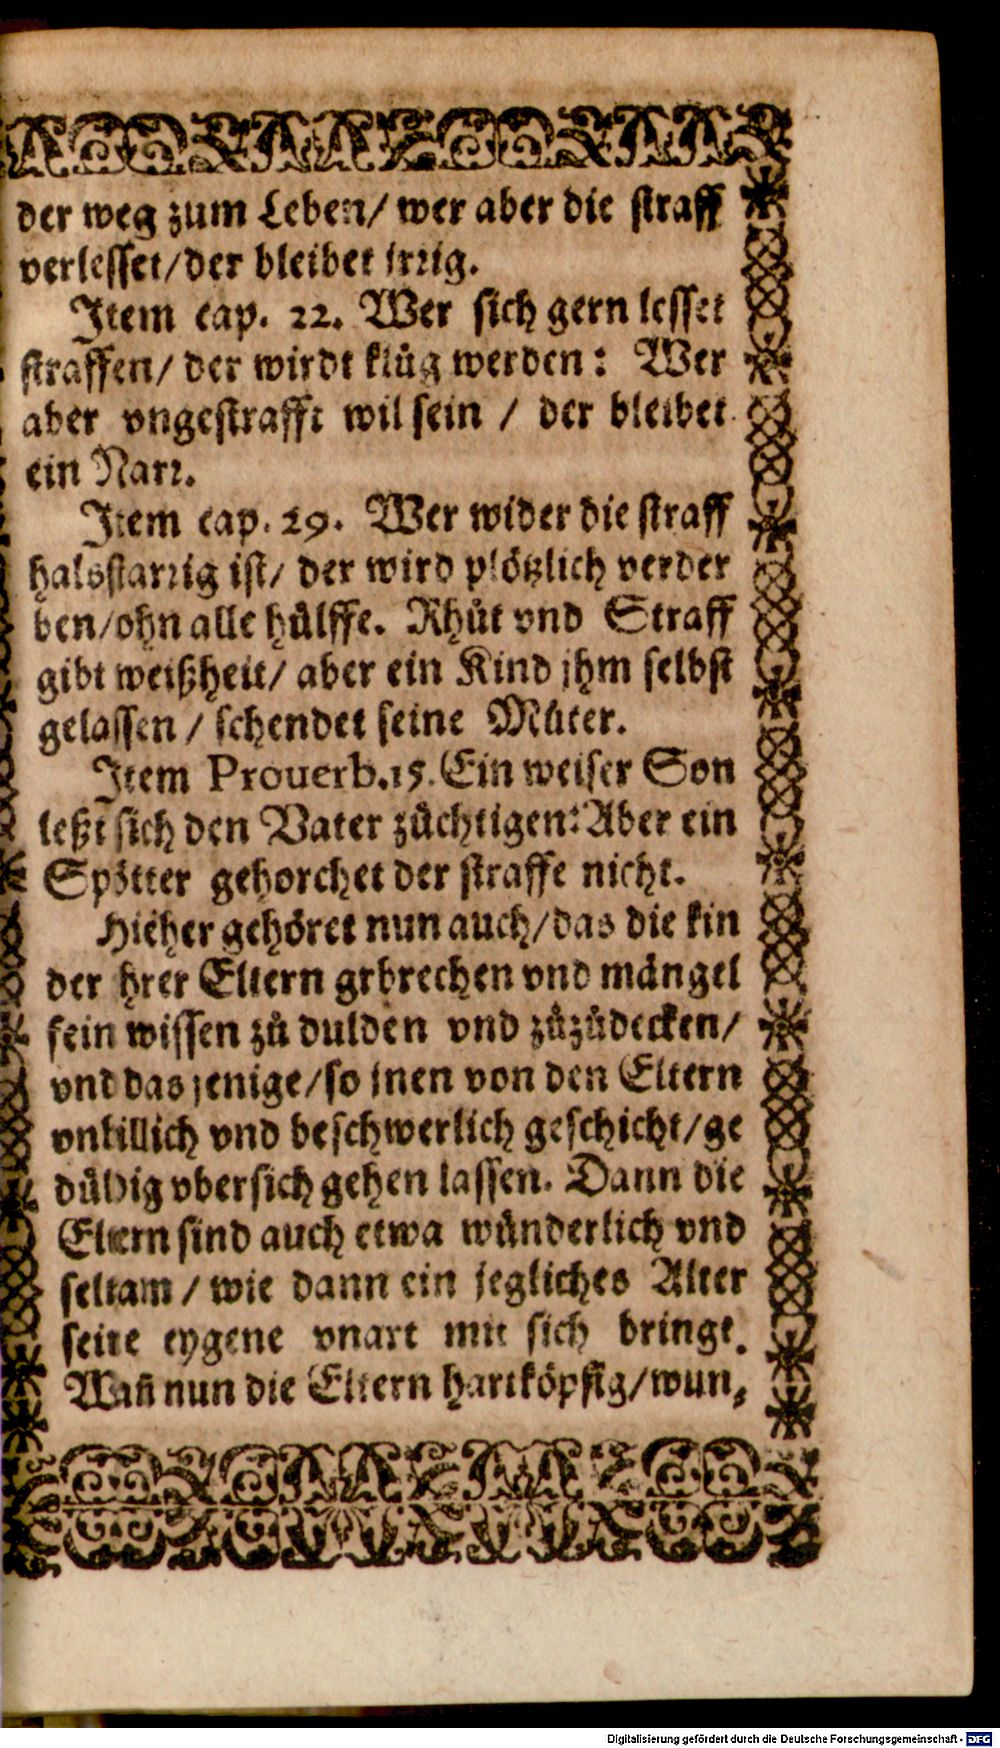 der weg zum Leben/ wer aber die straff
verlesset/der bleibet jrrig.
Item cap. 22. Wer sich gern lesset
straffen/ der wirdt klůg werden: Wer
aber vngestrafft wil sein / der bleibet
ein Narr.
Item cap. 29. Wer wider die straff
halsstarrig ist/ der wird plötzlich verder
ben/ohn alle hülffe. Rhůt vnd Straff
gibt weißheit/ aber ein Kind jhm selbst
gelassen / schendet seine Můter.
Item Prouerb. 15. Ein weiser Son
leßt sich den Vater züchtigen: Aber ein
Spötter gehorchet der straffe nicht.
Hieher gehöret nun auch/das die kin
der hrer Eltern grbrechen vnd mängel
fein wissen zů dulden vnd zůzůdecken/
vnd das jenige/so jnen von den Eltern
vnbillich vnd beschwerlich geschicht/ge
důldig vbersich gehen lassen. Dann die
Eltern sind auch etwa wünderlich vnd
seltam / wie dann ein jegliches Alter
seine eygene vnart mit sich bringt.
Wañ nun die Eltern hartköpfig/wun⸗
Digitalisierung gefördert durch die Deutsche Forschungsgemeinschaft - DFG